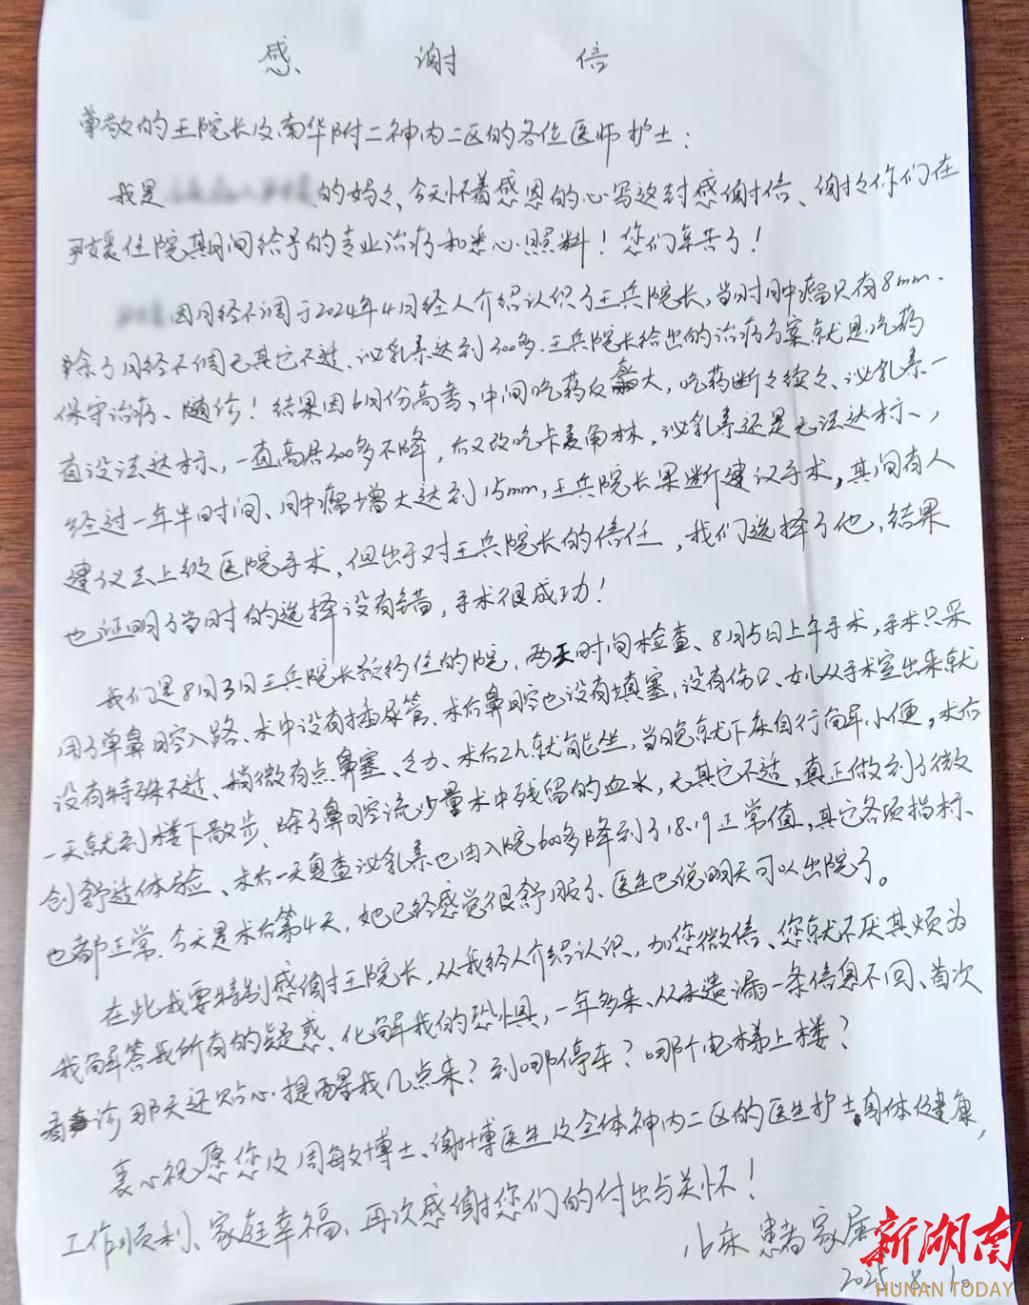 感 谢 信
尊敬的王院长及南华附二神内二区的各位医师护士：
我是 的妈妈、今天怀着感恩的心写这封感谢信、谢谢你们在
可媛住院期间给予的专业治疗和悉心照料！您们辛苦了！
因月经不调于2024年4月经人介绍认识了王兵院长，当时肿瘤只有8mm.
除了月经不调无其它不适、泌乳素达到300多.王兵院长给出的治疗方案就是吃药
保守治疗、随诊！结果因6月份高考、中间吃药反 大，吃药断断续续、泌乳素一
直没法达标、，一直高居300多不降，后又改吃卡麦角林，泌乳素还是无法达标、，
经过一年半时间、肿瘤增大达到15mm，王兵院长果断建议手术，其间有人
建议去上级医院手术，但出于对王兵院长的信任，我们选择了他，结果
也证明了当时的选择没有错，手术很成功！
我们是8月3日王兵院长预约住的院，两天时间检查、8月5日上午手术，手术只采
用了单鼻腔入路、术中没有插尿管、术后鼻腔也没有填塞，没有伤口、女儿从手术室出来就
没有特殊不适、稍微有点鼻塞、乏力、术后2h就能坐，当晚就下床自行解小便，术后
一天就到楼下散步、除了鼻腔流少量术中残留的血水，无其它不适，真正做到了微
创舒适体验、术后一天复查泌乳素也由入院600多降到了18.19正常值，其它各项指标、
也都正常.今天是术后第4天，她已经感觉很舒服了、医生也说明天可以出院了。
在此我要特别感谢王院长，从我经人介绍认识，加您微信、您就不厌其烦为
我解答我所有的疑惑、化解我的恐惧，一年多来、从未遗漏一条信息不回、首次
看诊那天还贴心提醒我几点来？到哪停车？哪个电梯上楼？
衷心祝愿您及周敏博士、谢博医生及全体神内二区的医生护士身体健康，
工作顺利、家庭幸福、再次感谢您们的付出与关怀！
16床患者家属
2025.8.10
新湖南
HUNAN TODAY